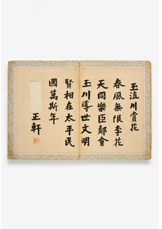 玉流川賞花
春風無限李花
天同樂臣鄰會
玉川導世文明
賢相在太平民
國萬斯年
正軒